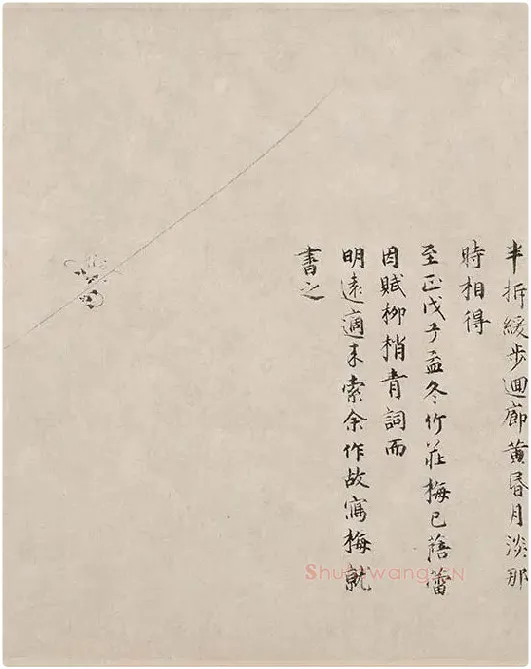 半折緩步迴廊黄昏月淡那
時相得
至正戊子孟冬竹莊梅已蓓蕾
因賦柳梢青詞而
明遠適来索余作故寫梅就
書之